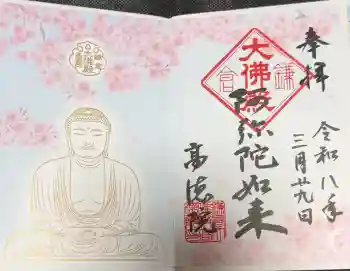 奉拝
令和八年
三月廿九日
大佛殿
鎌倉
阿弥陀如来
高徳院